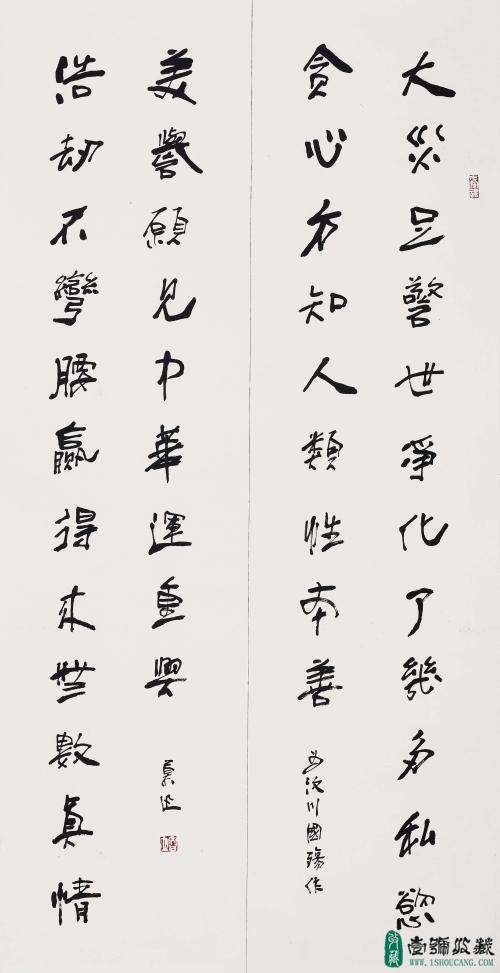 大災足警世淨化了幾多私慾
貪心方知人類性本善
汶川國殤作
浩劫不彎腰贏得來無數真情
美譽願見中華運重興
壹號收藏
WWW.1SHOUCANG.COM